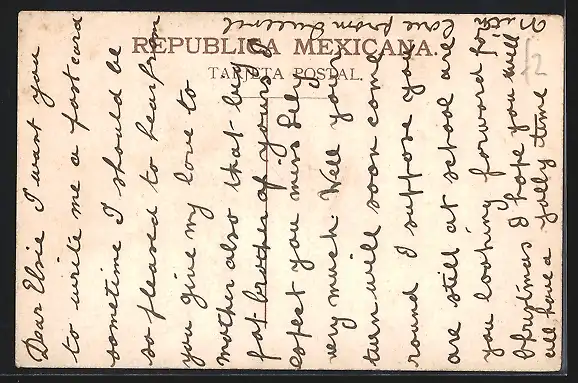 REPUBLICA MEXICANA.
TARJETA POSTAL.
Dear Elsie I want you
to write me a post card
sometime I should be
so pleased to hear from
you give my love to
mother also that big
fat brother of yours I
expect you miss Lily
very much. Well your
turn will soon come
round I suppose you
are still at school are
you looking forward for
Christmas I hope you will
all have a jolly time
With
love from